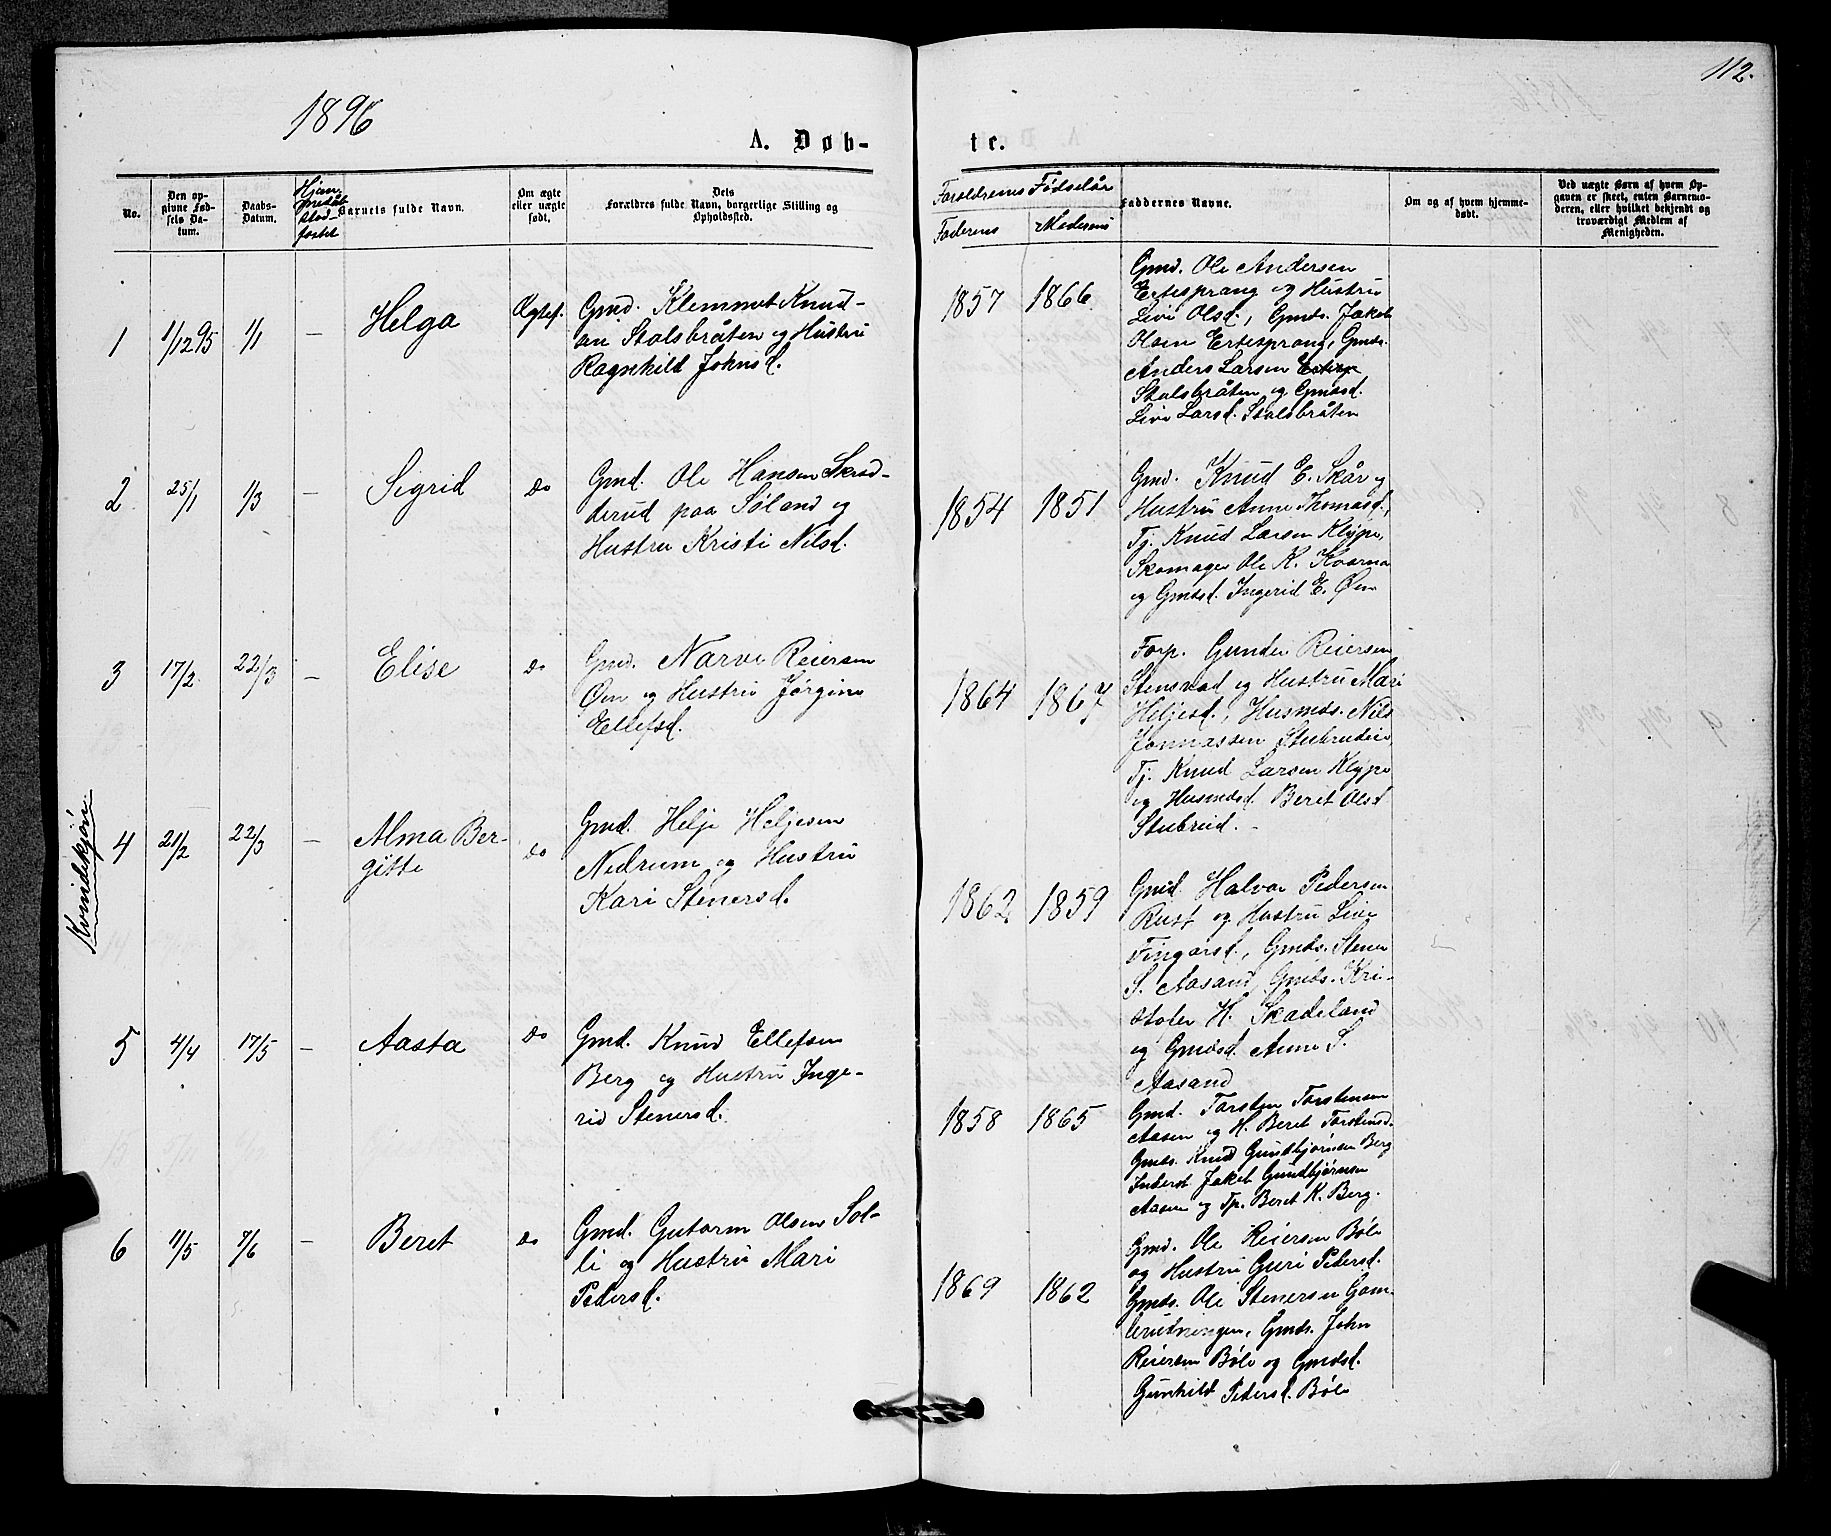 1896
112.
A. Døb-
te.
No.
Den op-
givne Fød-
sels Da-
tum.
Daabs-
Datum.
Hjem-
medøbt
Stad-
fæstet
Barnets fulde Navn.
Om ægte
eller uægte
født.
Dets
Forældres fulde Navn, borgerlige Stilling og
Opholdssted.
Forældrenes Fødselår
Faderens
Moderens
Faddernes Navne.
Om og af hvem hjemme-
døbt.
Ved uægte Børn af hvem Op-
gaven er skeet, enten Barnemo-
deren, eller hvilket bekjendt og
troværdigt Medlem af
Menigheden.
Kvindekjøn.
1
1/12 95
1/1
—
Helga
Ægtef.
Gmd. Klemmet Knud-
sen Stalsbråten og Hustru
Ragnhild Johnsd.
1857
1866
Gmd. Ole Andersen
Ertesprang og Hustru
Livi Olsd., Gmds. Jakob
Olsen Ertesprang, Gmds.
Anders Larsen
Stalsbråten og Gmdsd.
Livi Larsd. Stalsbråten
2
25/1
1/3
—
Sigrid
Do
Gmd. Ole Hansen Skræd-
derud paa Søland og
Hustru Kristi Nilsd.
1854
1851
Gmd. Knud E. Skår og
Hustru Anne Thomasd.,
Tj. Knud Larsen Klype,
Skomager Ole K. Kvarna
og Gmdsd. Ingerid E. Øen
3
17/2
22/3
—
Elise
Do
Gmd. Narve Reiersen
Øen og Hustru Jørgine
Ellefsd.
1864
1867
Forp. Gunder Reiersen
Stensrud og Hustru Mari
Heljesd., Husmds. Nils
Jonnassen Stubrudeie,
Tj. Knud Larsen Klype
og Husmdsd. Beret Olsd
Stubrud.
4
21/2
22/3
—
Alma Ber-
gitte
Do
Gmd. Helje Heljesen
Nedrum og Hustru
Kari Stenersd.
1862
1859
Gmd. Halvor Pedersen
Rust og Hustru Live
Fingarsd., Gmds. Stener
S. Aasand, Gmds. Kri-
stofer H. Skadeland
og Gmdsd. Anne S.
Aasand
5
4/4
17/5
—
Aasta
Do
Gmd. Knud Ellefsen
Berg og Hustru Inge-
rid Stenersd.
1858
1865
Gmd. Torsten Torstensen
Aasen og H. Beret Torstensd.
Gmds. Knud Gundbjørnsen Berg
Inderst Jakob Gundbjørnsen
Aasen og Tp. Beret K. Berg.
6
11/5
7/6
—
Beret
Do
Gmd. Gutorm Olsen Sol-
li og Hustru Mari
Pedersd.
1869
1862
Gmd. Ole Reiersen Bøle
og Hustru Guri Pedersd.
Gmds. Ole Stenersen Gam-
Gmds. John
Reiersen Bøle og Gmdsd.
Gunhild Pedersd. Bøle